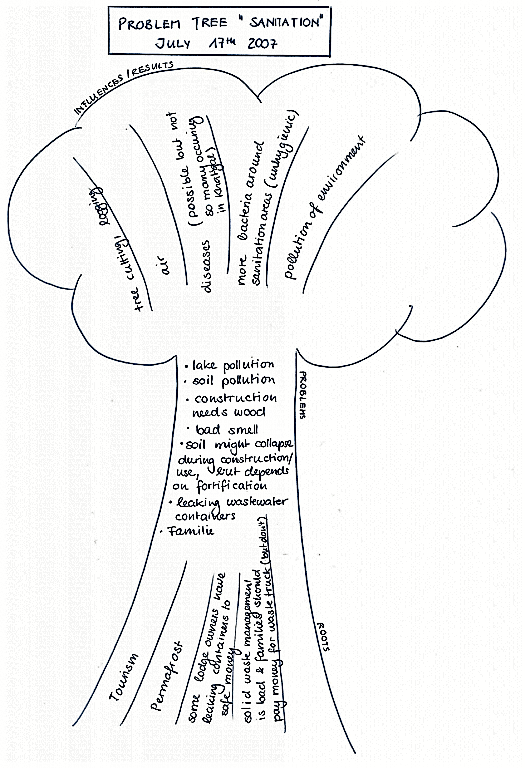 PROBLEM TREE "SANITATION"
JULY 17th 2007
INFLUENCES / RESULTS
tree cutting / logging
air
diseases (possible but not
so many occuring
in Khatgal)
more bacteria around
sanitation areas (unhygienic)
pollution of environment
PROBLEMS
· lake pollution
· soil pollution
· construction
needs wood
· bad smell
· soil might collapse
during construction/
use, but depends
on fortification
· leaking wastewater
containers
· Familie
ROOTS
Tourism
Permafrost
some lodge owners have
leaking containers to
safe money
solid waste management
is bad & families should
pay money for waste truck (but don't)